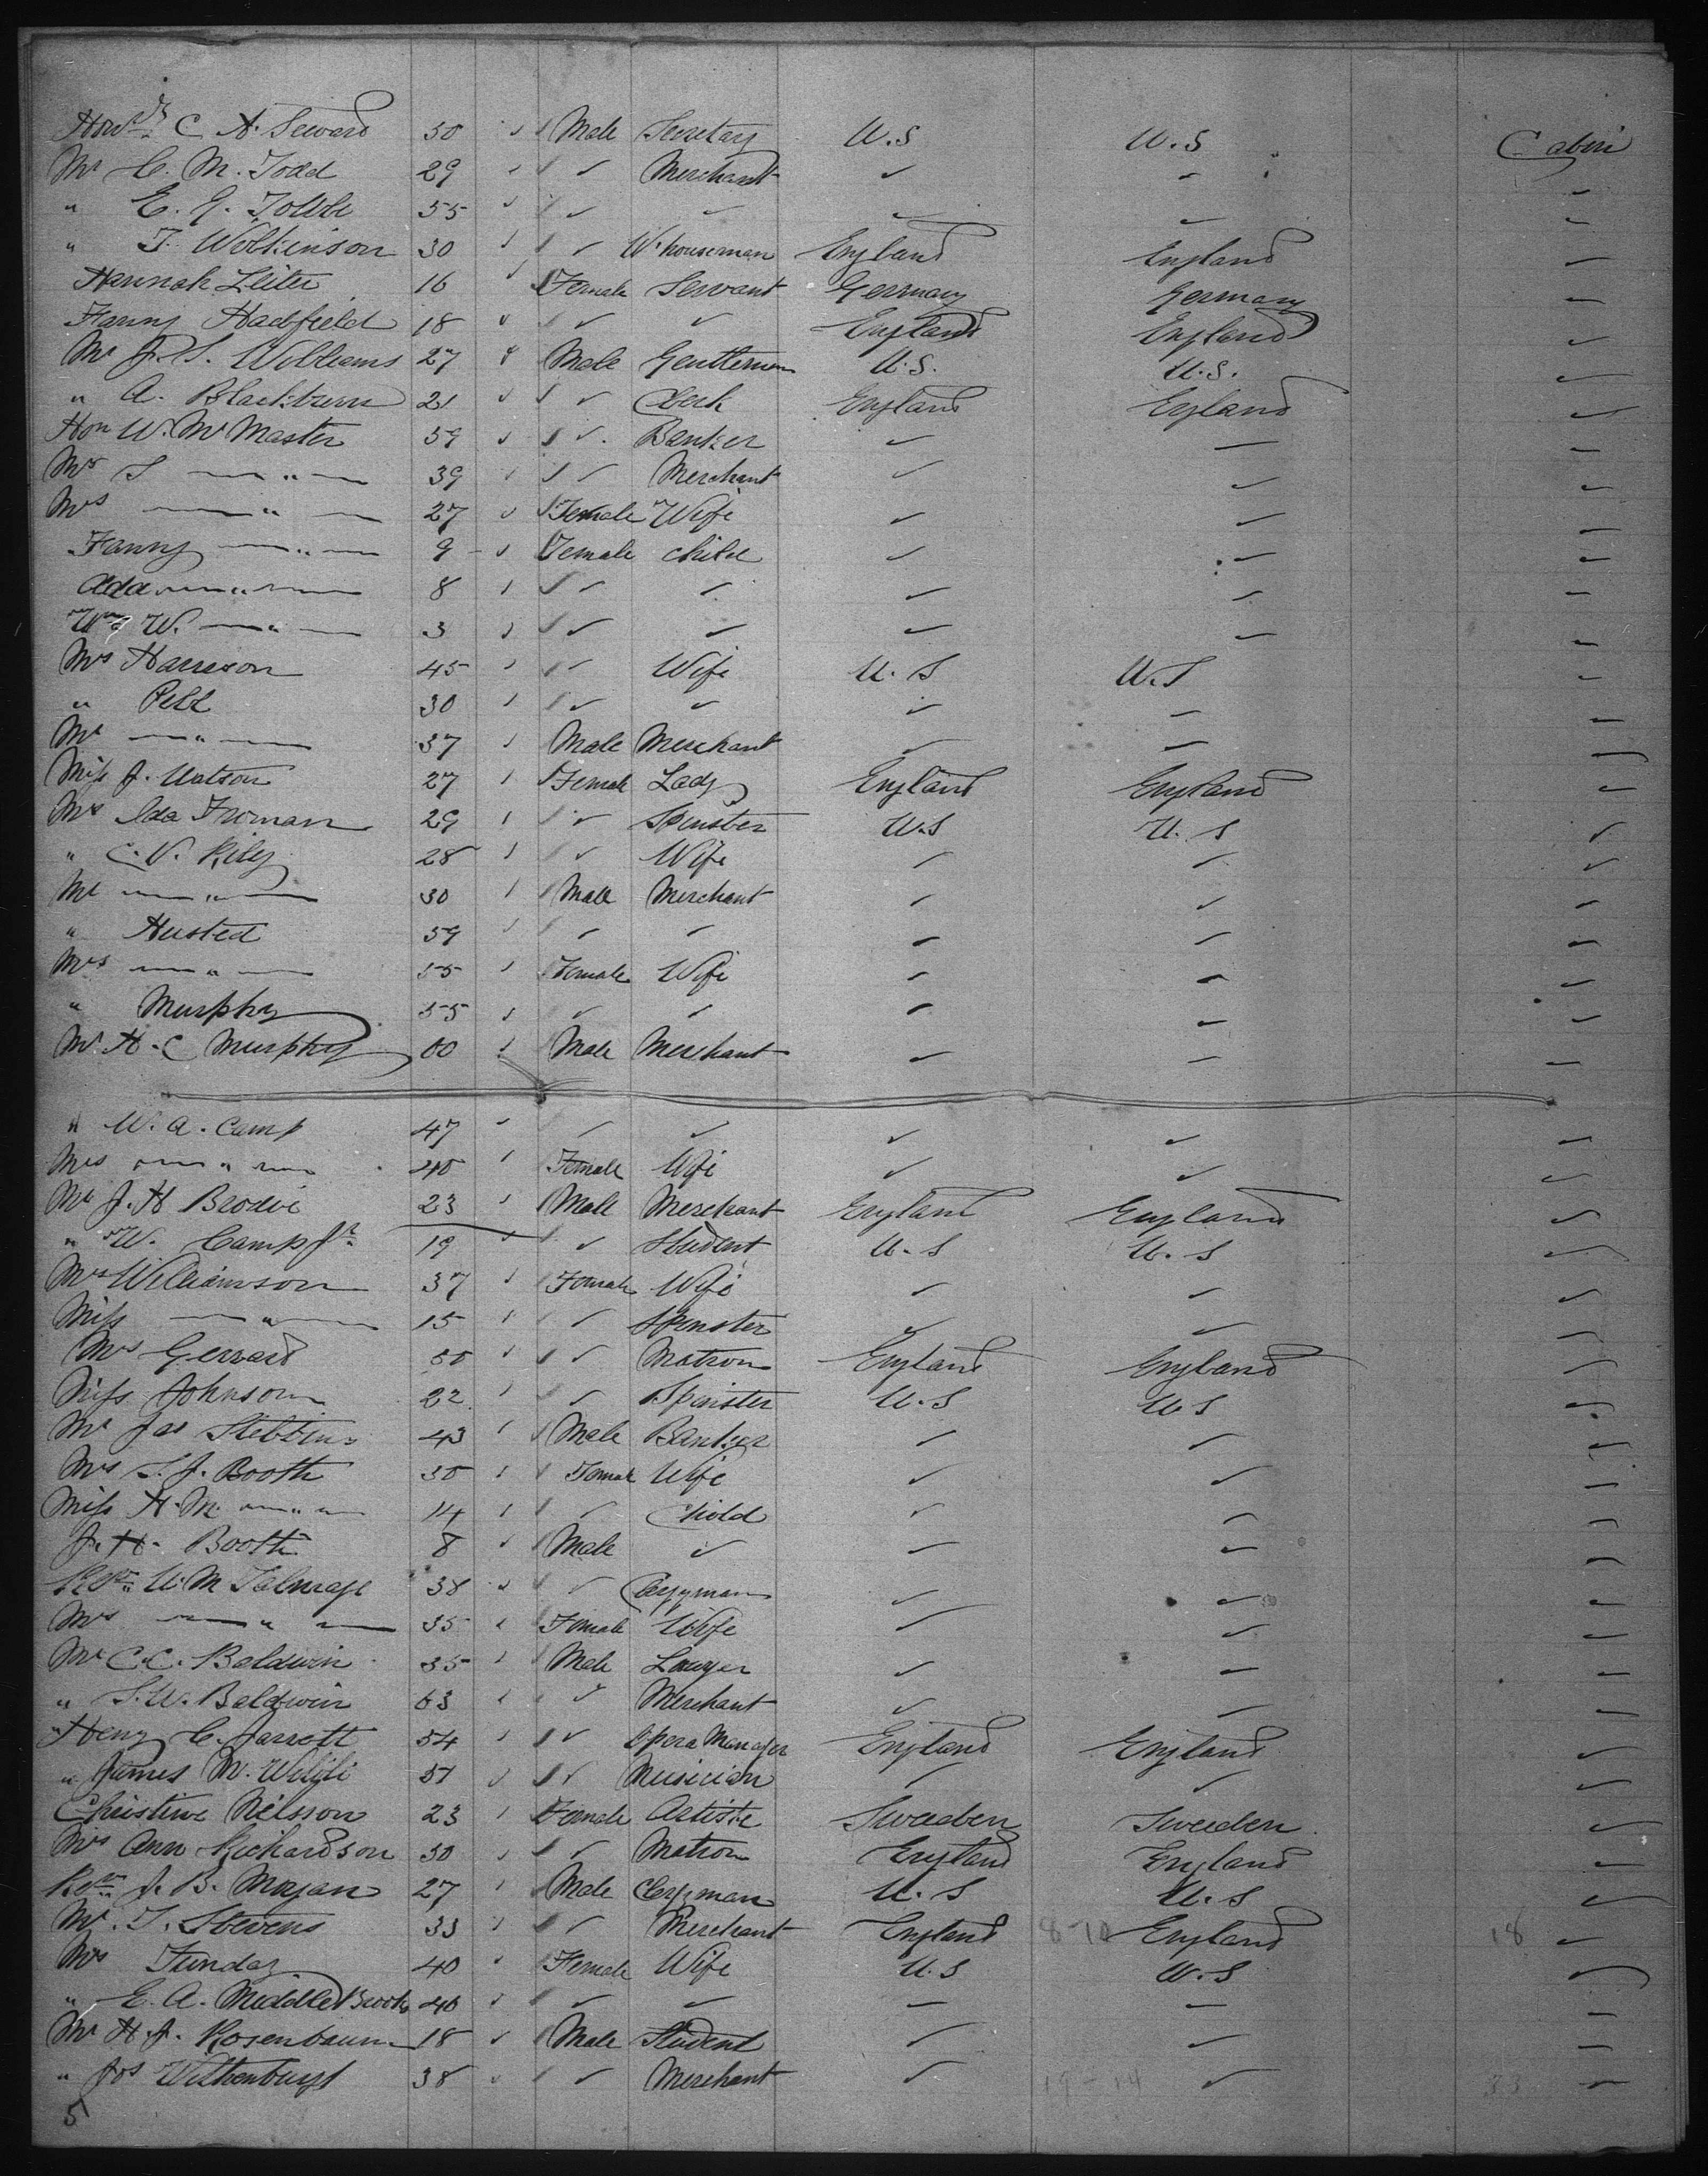 Honble C A. Seward 50 ✓ Male Secretary U.S U.S Cabin
Mr C. M. Todd 29 ✓ ✓ Merchant ✓ ✓ ✓
" E. G. 55 ✓ ✓ ✓ ✓ ✓ ✓
" T. Wilkinson 30 ✓ ✓ W'houseman England England ✓
Hannah Leiter 16 ✓ Female Servant Germany Germany ✓
Fanny Hadfield 18 ✓ ✓ ✓ England England ✓
Mr J. S. Williams 27 ✓ Male Gentleman U.S. U.S. ✓
" A. Blackburn 21 ✓ ✓ Clerk England England ✓
Hon W. McMaster 59 ✓ ✓ Banker ✓ ✓ ✓
Mr S — " — 39 ✓ ✓ Merchant ✓ ✓ ✓
Mrs — " — 27 ✓ Female Wife ✓ ✓ ✓
Fanny — " — 9 ✓ Female child ✓ ✓ ✓
Ada — " — 8 ✓ ✓ ✓ ✓ ✓ ✓
Wm W. — " — 3 ✓ ✓ ✓ ✓ ✓ ✓
Mrs Harrison 45 ✓ ✓ Wife U.S U.S ✓
" Pell 30 ✓ ✓ ✓ ✓ ✓ ✓
Mr — " — 37 ✓ Male Merchant ✓ ✓ ✓
Miss J. Watson 27 ✓ Female Lady England England ✓
Mrs Ida Froman 29 ✓ ✓ Spinster U.S U.S ✓
" C. V. Riley 28 ✓ ✓ Wife ✓ ✓ ✓
Mr — " — 30 ✓ Male Merchant ✓ ✓ ✓
" Husted 59 ✓ ✓ ✓ ✓ ✓ ✓
Mrs — " — 55 ✓ Female Wife ✓ ✓ ✓
" Murphy 55 ✓ ✓ ✓ ✓ ✓ ✓
Mr H. C Murphy 60 ✓ Male Merchant ✓ ✓ ✓
" W. A. Camp 47 ✓ ✓ ✓ ✓ ✓ ✓
Mrs — " — 40 ✓ Female Wife ✓ ✓ ✓
Mr J. H Brodie 23 ✓ Male Merchant England England ✓
" W. Camp Jr 19 ✓ ✓ Student U.S U.S ✓
Mrs Williamson 37 ✓ Female Wife ✓ ✓ ✓
Miss — " — 15 ✓ ✓ Spinster ✓ ✓ ✓
Mrs Gerrard 50 ✓ ✓ Matron England England ✓
Miss Johnson 22 ✓ ✓ Spinster U.S U.S ✓
Mr Jas Stebbins 43 ✓ Male Banker ✓ ✓ ✓
Mrs S. J. Booth 30 ✓ Female Wife ✓ ✓ ✓
Miss H. M. — " — 14 ✓ ✓ Child ✓ ✓ ✓
J. H. Booth 8 ✓ Male ✓ ✓ ✓ ✓
Revd W. M Talmage 38 ✓ ✓ Clergyman ✓ ✓ ✓
Mrs — " — 35 ✓ Female Wife ✓ ✓ ✓
Mr C. C. Baldwin 35 ✓ Male Lawyer ✓ ✓ ✓
" S. W. Baldwin 63 ✓ ✓ Merchant ✓ ✓ ✓
" Heny C. Jarrett 54 ✓ ✓ Opera Manager England England ✓
" James M. 51 ✓ ✓ Musician ✓ ✓ ✓
Christine Nilsson 23 ✓ Female Artiste Sweeden Sweeden ✓
Mrs Ann Richardson 30 ✓ ✓ Matron England England ✓
Revd J. B. 27 ✓ Male Clergyman U.S U.S ✓
Mr. T. Stevens 33 ✓ ✓ Merchant England 8-10 England 18 ✓
Mrs 40 ✓ Female Wife U.S U.S ✓
" E. A. MiddleBrook 40 ✓ ✓ ✓ ✓ ✓ ✓
Mr H. J. Rosenbaum 18 ✓ Male Student ✓ ✓ ✓
" Jos 38 ✓ ✓ Merchant ✓ 19-14 ✓ 33 ✓
5